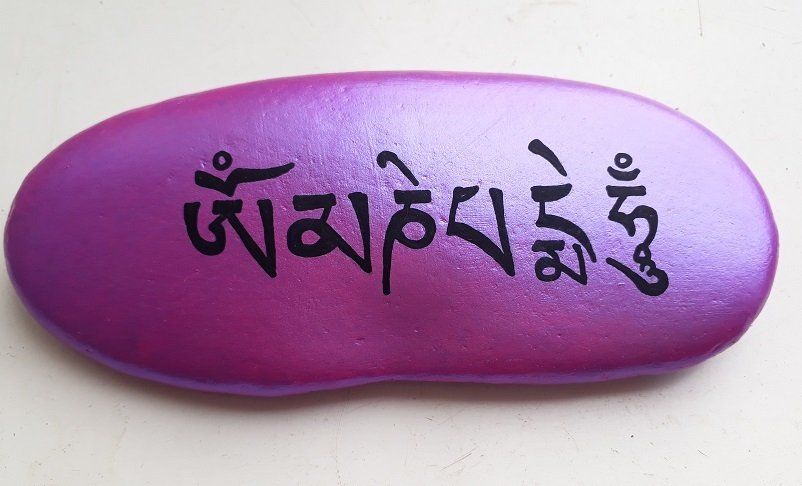 ༀ མ ཎེ པ དྨེ ཧཱུྃ